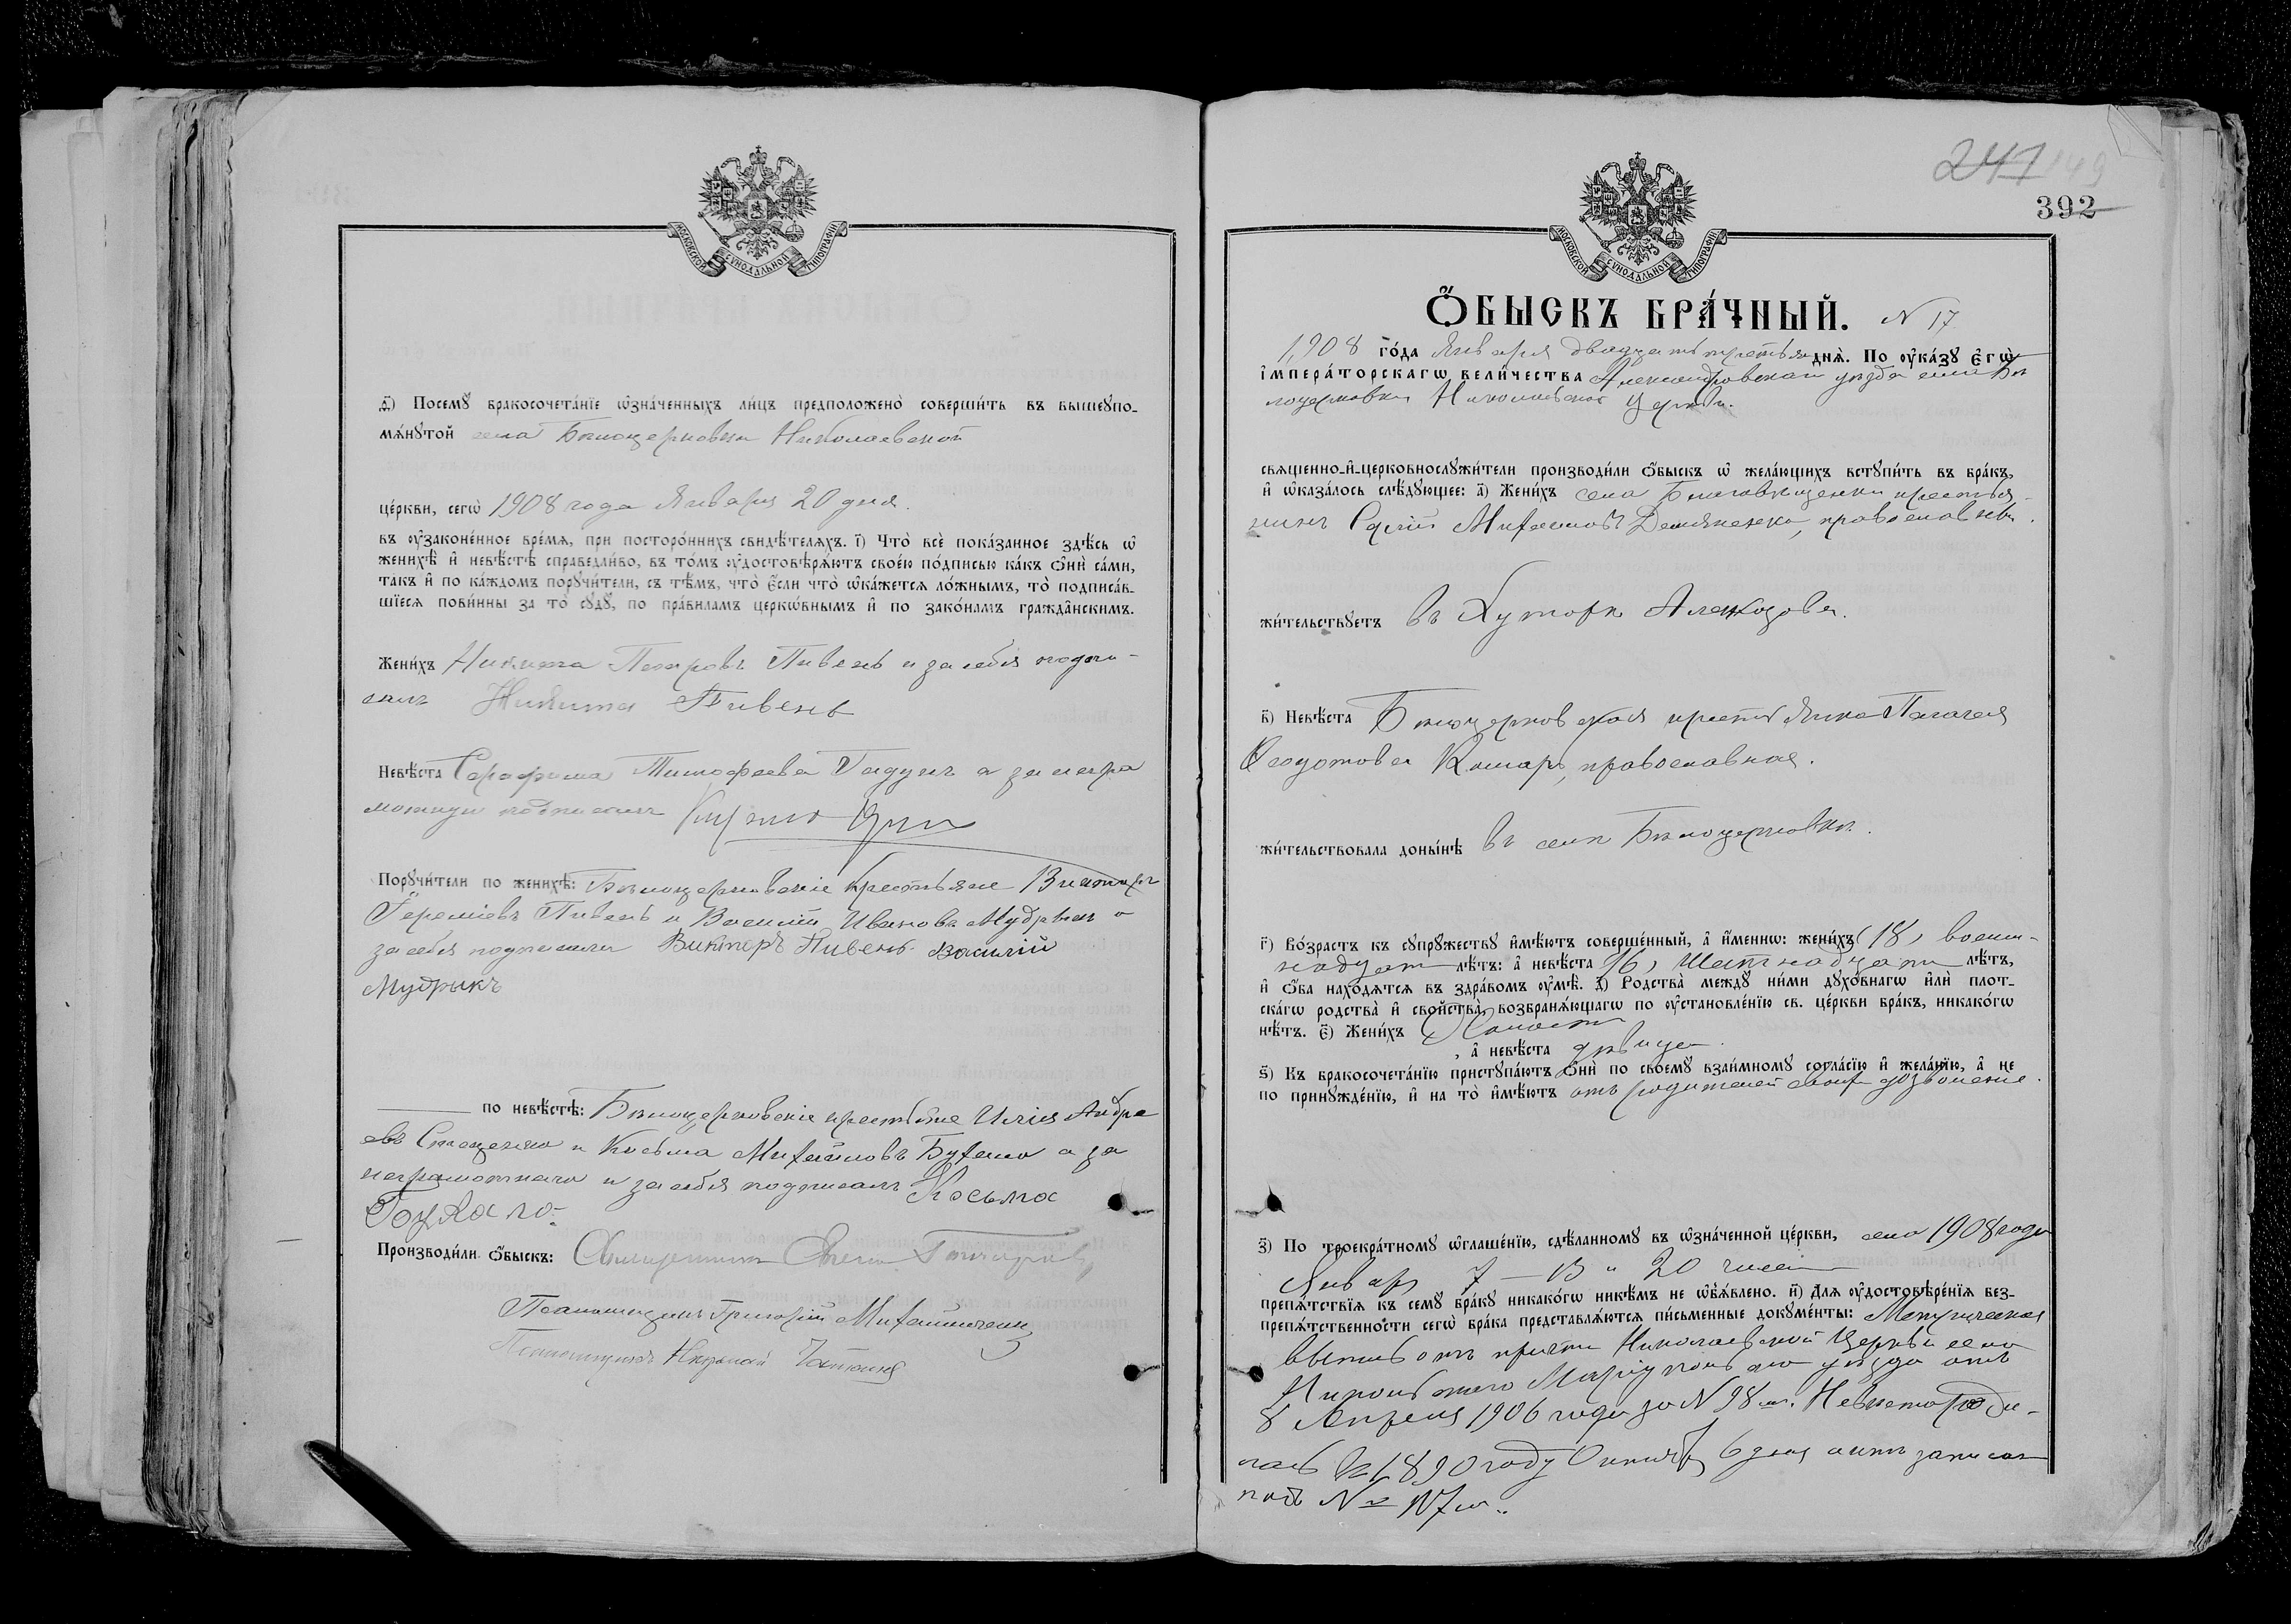 МОСКОВСКОЙ СѴНОДАЛЬНОЙ ТИПОГРАФІИ
ѳ҃) Посемꙋ̀ бракосочета́нїе ѡ҆зна́ченныхъ ли́цъ предположено̀ соверши́ть въ вышеꙋпо-
мѧ́нꙋтой села Бѣлоцерковки Николаевской
це́ркви, сегѡ̀ 1908 года Января 20 дня.
въ ᲂу҆законе́нное вре́мѧ, при посторо́ннихъ свидѣ́телѧхъ. і҃) Что̀ всѐ пока́занное здѣ́сь ѡ҆
женихѣ̀ и҆ невѣ́стѣ справедли́во, въ то́мъ ᲂу҆достовѣрѧ́ютъ свое́ю по́дписью ка́къ ѻ҆нѝ са́ми,
та́къ и҆ по ка́ждомъ порꙋчи́тели, съ тѣ́мъ, что̀ є҆́сли что̀ ѡ҆ка́жетсѧ ло́жнымъ, то̀ подписа́в-
шїесѧ пови́нны за то̀ сꙋдꙋ̀, по пра́виламъ церкѡ́внымъ и҆ по зако́намъ гражда̑нскимъ.
Жени́хъ Никита Петровъ Пивень и за себя подпи-
салъ Никита Пивень
Невѣ́ста Серафима Тимофеева Гайдукъ а за негра
мотную подписалъ
Порꙋчи́тели по женихѣ̀: Бѣлоцерковскіе крестьяне Викторъ
Іереміевъ Пивень и Василій Ивановъ Мудрыкъ а
за себя подписали Викторъ Пивень Василій
Мудрыкъ
по невѣ́стѣ: Бѣлоцерковскіе крестьяне Илія Андре
евъ Стаценко и Косьма Михайловъ а за
неграмотнаго и за себя подписалъ Косьма
Производи́ли ѻ҆́быскъ: Священникъ
Псаломщикъ Григорій Михайличенко
Псаломщикъ Николай
247 149
392
МОСКОВСКОЙ СѴНОДАЛЬНОЙ ТИПОГРАФІИ
Ѻ҆́БЫСКЪ БРА́ЧНЫЙ. N 17
1908 го́да Января двадцать третья днѧ̀. По ᲂу҆ка́зꙋ Е҆гѡ̀
І҆мпера́торскагѡ вели́чества Александровскаго уѣзда села Бѣ
лоцерковки Николаевской церкви.
свѧще́нно-и҆-церковнослꙋжи́тели производи́ли ѻ҆́быскъ ѡ҆ жела́ющихъ встꙋпи́ть въ бра́къ,
и҆ ѡ҆каза́лось слѣ́дꙋющее: а҃) Жени́хъ села Благовѣщенки крестья-
нинъ Сергій Михаиловъ Демяненко, православный.
жи́тельствꙋетъ въ Хуторѣ
в҃) Невѣ́ста Бѣлоцерковская крестьянка Пелагея
Феодотова Комаръ, православная.
жи́тельствовала доны́нѣ въ селѣ Бѣлоцерковкѣ.
г҃) Во́зрастъ къ сꙋпрꙋ́жествꙋ и҆мѣ́ютъ соверше́нный, а҆ и҆́меннѡ: жени́хъ (18) восем-
надцать лѣ́тъ: а҆ невѣ́ста 16, Шестнадцать лѣ́тъ,
и҆ ѻ҆́ба нахо́дѧтсѧ въ здра́вомъ ᲂу҆мѣ̀. д҃) Родства̀ междꙋ̀ ни́ми дꙋхо́внагѡ и҆лѝ плот-
ска́гѡ родства̀ и҆ сво́йства, возбранѧ́ющагѡ по ᲂу҆становле́нїю св. це́ркви бра́къ, никако́гѡ
нѣ́тъ. є҃) Жени́хъ Холостъ
, а҆ невѣ́ста дѣвица.
ѕ҃) Къ бракосочета́нїю пристꙋпа́ютъ ѻ҆нѝ по своемꙋ̀ взаи́мномꙋ согла́сїю и҆ жела́нїю, а҆ не
по принꙋжде́нїю, и҆ на то̀ и҆мѣ́ютъ отъ родителей своихъ дозволеніе.
з҃) По троекра́тномꙋ ѡ҆глаше́нїю, сдѣ́ланномꙋ въ ѡ҆зна́ченной це́ркви, сего 1908 года
Января 7 — 13 и 20 чисел
препѧ́тствїѧ къ семꙋ̀ бра́кꙋ никако́гѡ никѣ́мъ не ѡ҆б̾ѧ́влено. и҃) Длѧ̀ ᲂу҆достовѣре́нїѧ без-
препѧ́тственности сегѡ̀ бра́ка представлѧ́ютсѧ пи́сьменные докꙋме́нты: Метрическая
выпись отъ причта Николаевской Церкви села
Никольскаго Маріупольского уѣзда отъ
8 Апреля 1906 года за N 98 м. Невеста роди-
лась въ 1890 году Октября 6 дня актъ записан
подъ № 107 м.